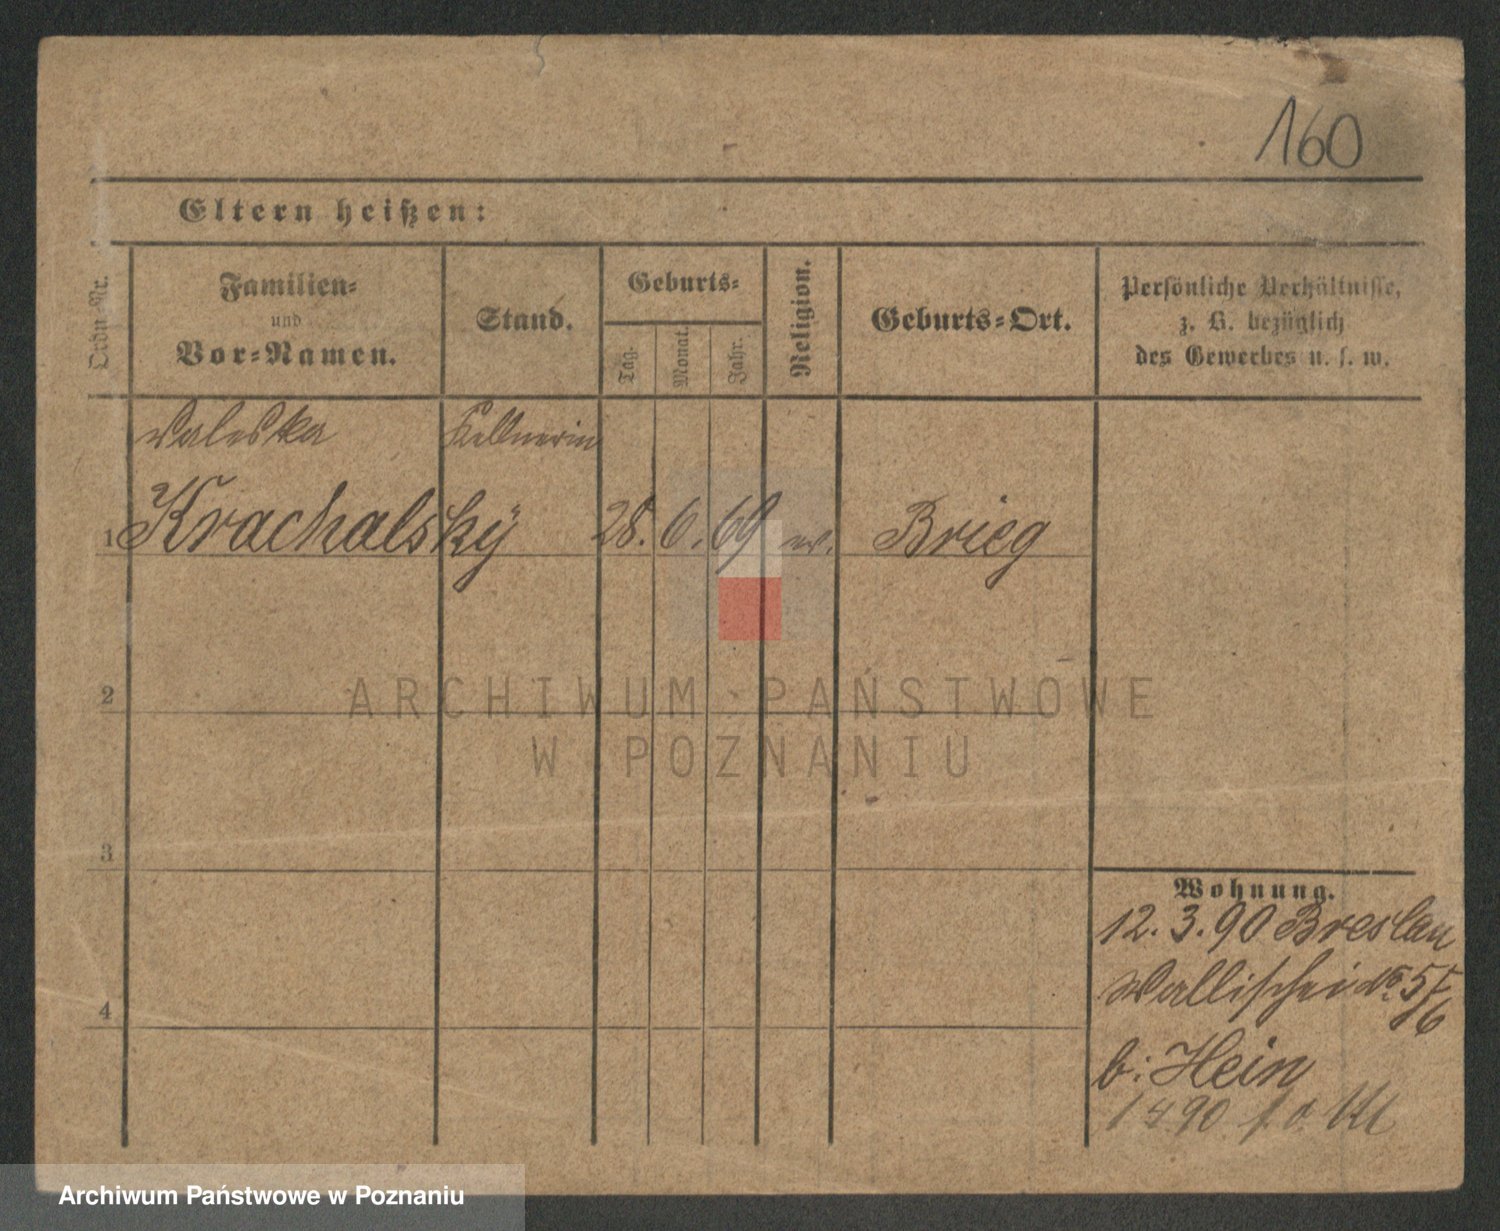 160
Eltern heißen:
Ordn.-Nr.
Familien-
und
Vor-Namen.
Stand.
Geburts-
Tag.
Monat.
Jahr.
Religion.
Geburts-Ort.
Persönliche Verhältnisse,
z. B. bezüglich
des Gewerbes u. s. w.
Valeska Kellnerin
1 Krachalský 28. 6. 69 ev. Brieg
2
ARCHIWUM PAŃSTWOWE
W POZNANIU
3
4
Wohnung.
12. 3. 90 Breslau
Wallischei No 5/6
b. Hein
90
Archiwum Państwowe w Poznaniu